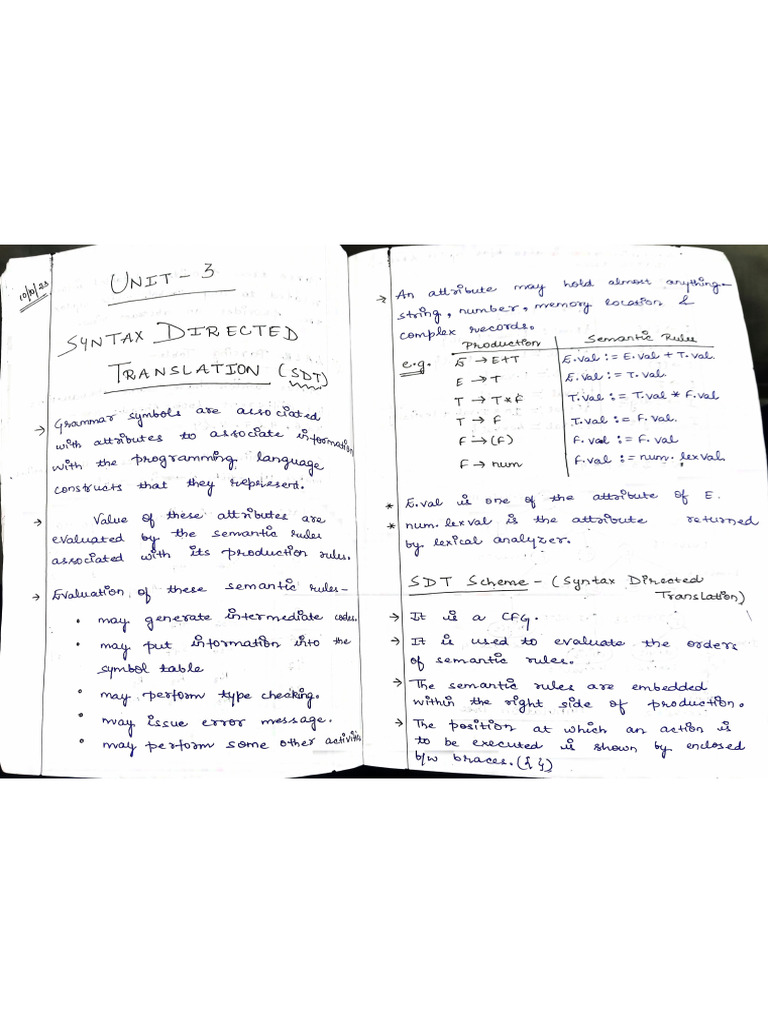 10/10/23
UNIT - 3
SYNTAX DIRECTED
TRANSLATION (SDT)
→ Grammar symbols are associated
with attributes to associate information
with the programming language
constructs that they represent.
→ Value of these attributes are
evaluated by the semantic rules
associated with its production rules.
→ Evaluation of these semantic rules-
• may generate intermediate codes.
• may put information into the
symbol table
• may perform type checking.
• may issue error message.
• may perform some other activities
→ An attribute may hold almost anything-
string, number, memory location &
complex records.
Production Semantic Rules
e.g. E → E+T E.val := E.val + T.val
E → T E.val := T.val
T → T*F T.val := T.val * F.val
T → F T.val := F.val.
F → (F) F.val := F.val
F → num F.val := num.lexval.
* E.val is one of the attribute of E.
* num.lexval is the attribute returned
by lexical analyzer.
SDT Scheme - (Syntax Directed
Translation)
→ It is a CFG.
→ It is used to evaluate the orders
of semantic rules.
→ The semantic rules are embedded
within the right side of production.
→ The position at which an action is
to be executed is shown by enclosed
b/w braces. ({ })